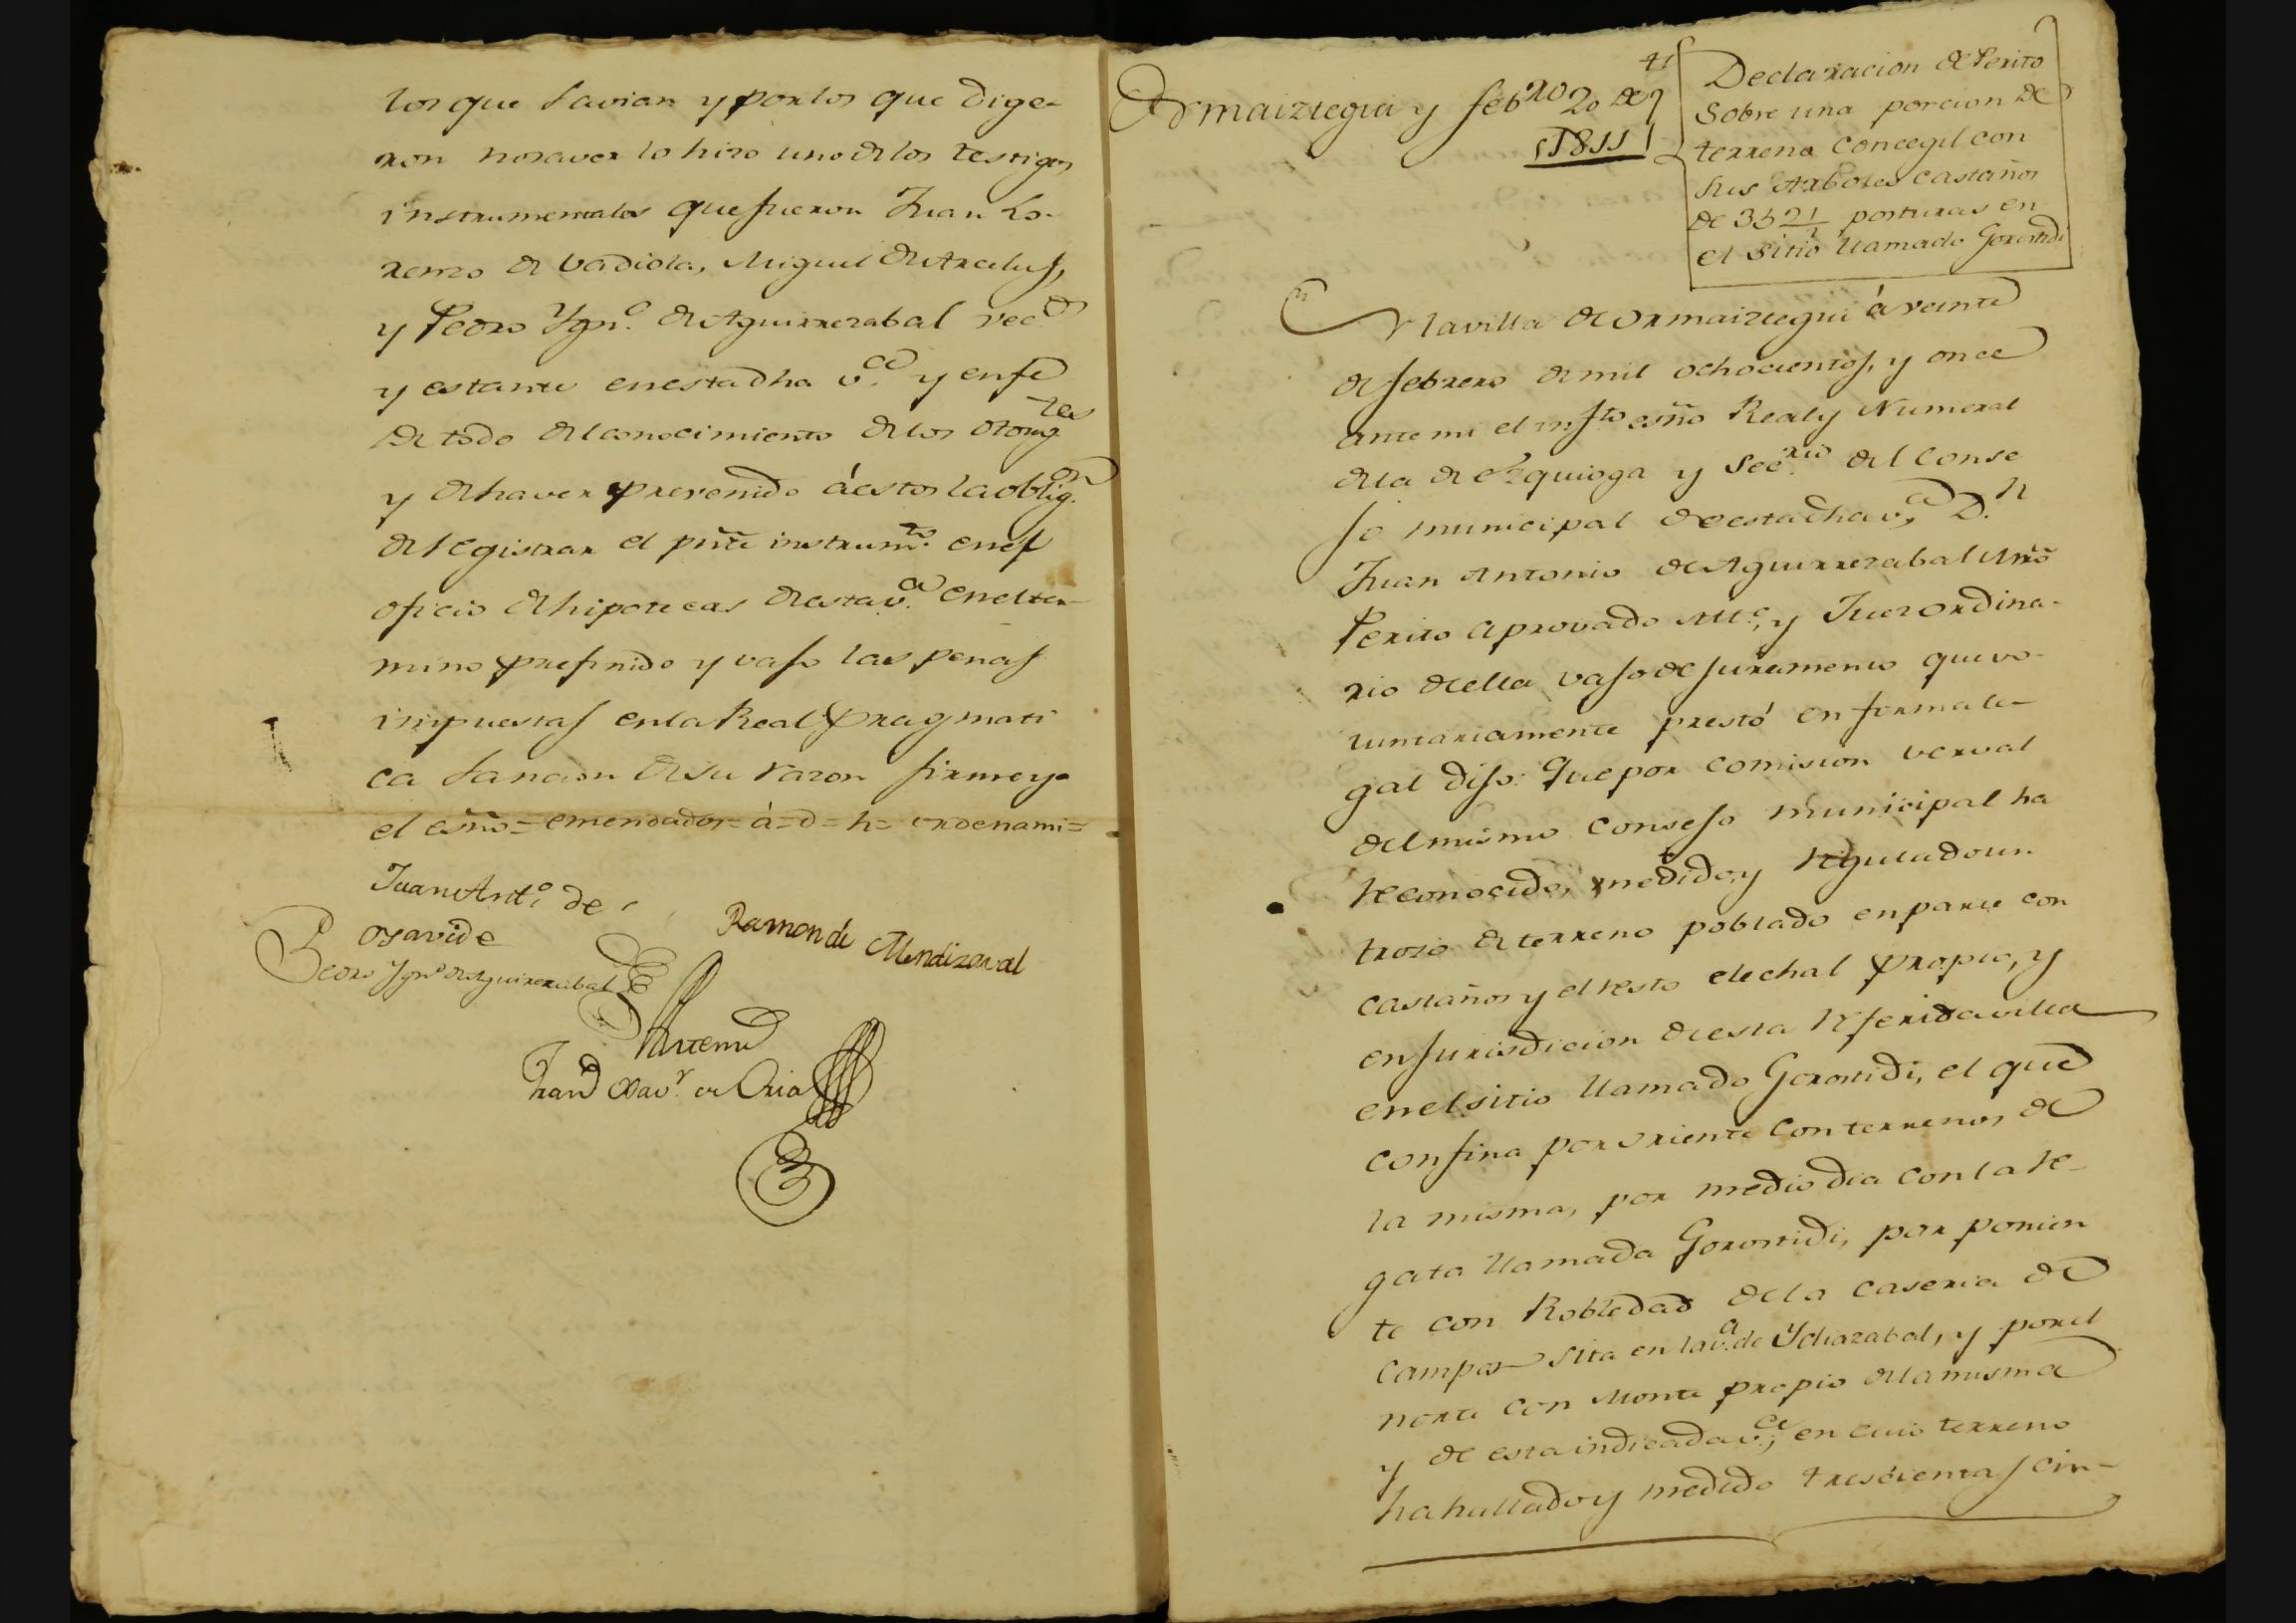 los que savian y por los que dige-
ron no saver lo hizo uno de los testigos
instrumentales que fueron Juan Lo-
renzo de Vadiola, Miguel de Arcelus,
y Pedro Ygn.º de Aguirrezabal vec.os
y estante en esta dha v.a y en fe
de todo del conocimiento de los otorg.tes
y de haver prevenido á estos la oblig.on
de registrar el pnte instrum.to en el
oficio de hipotecas de esta v.a en el ter-
mino prefinido y vajo las penas
impuestas en la Real Pragmati
ca sancion de su razon firme yo
el esño = emendados = á = d = h = ordenami =
Juan Ant.º de
Osavide
Ramon de Mendizaval
Pedro Ygn.º de Aguirrezabal
Ante mi
Fran.co Xav.r de Oria
41
Ormaiztegui y feb.ro 20 de
1811
Declaracion de Perito
Sobre una porcion de
terreno Concegil con
sus Arboles castaños
de 352 1/2 posturas en
el Sitio llamado Gorostidi
En la villa de Ormaiztegui á veinte
de febrero de mil ochocientos, y once
ante mi el infto esño Real y Numeral
de la de Ezquioga y Sec.rio del Conse
jo municipal de esta dha v.a D.n
Juan Antonio de Aguirrezabal Mro
Perito aprovado Al.e, y Juez ordina-
rio de ella vajo de juramento que vo-
luntariamente prestó en forma le-
gal dijo: Que por comision verval
del mismo Consejo municipal ha
reconocido, medido, y regulado un
trozo de terreno poblado en parte con
castaños y el resto elechal propio, y
en jurisdicion de esta referida villa
en el sitio llamado Gorostidi, el que
confina por oriente con terrenos de
la misma, por medio dia con la re-
gata llamada Gorostidi, por ponien
te con Robledad de la caseria de
Campos sita en la v.a de Ychazabal, y por el
norte con Monte propio de la misma
y de esta indicada v.a, en cuio terreno
ha hallado y medido trescientas cin-